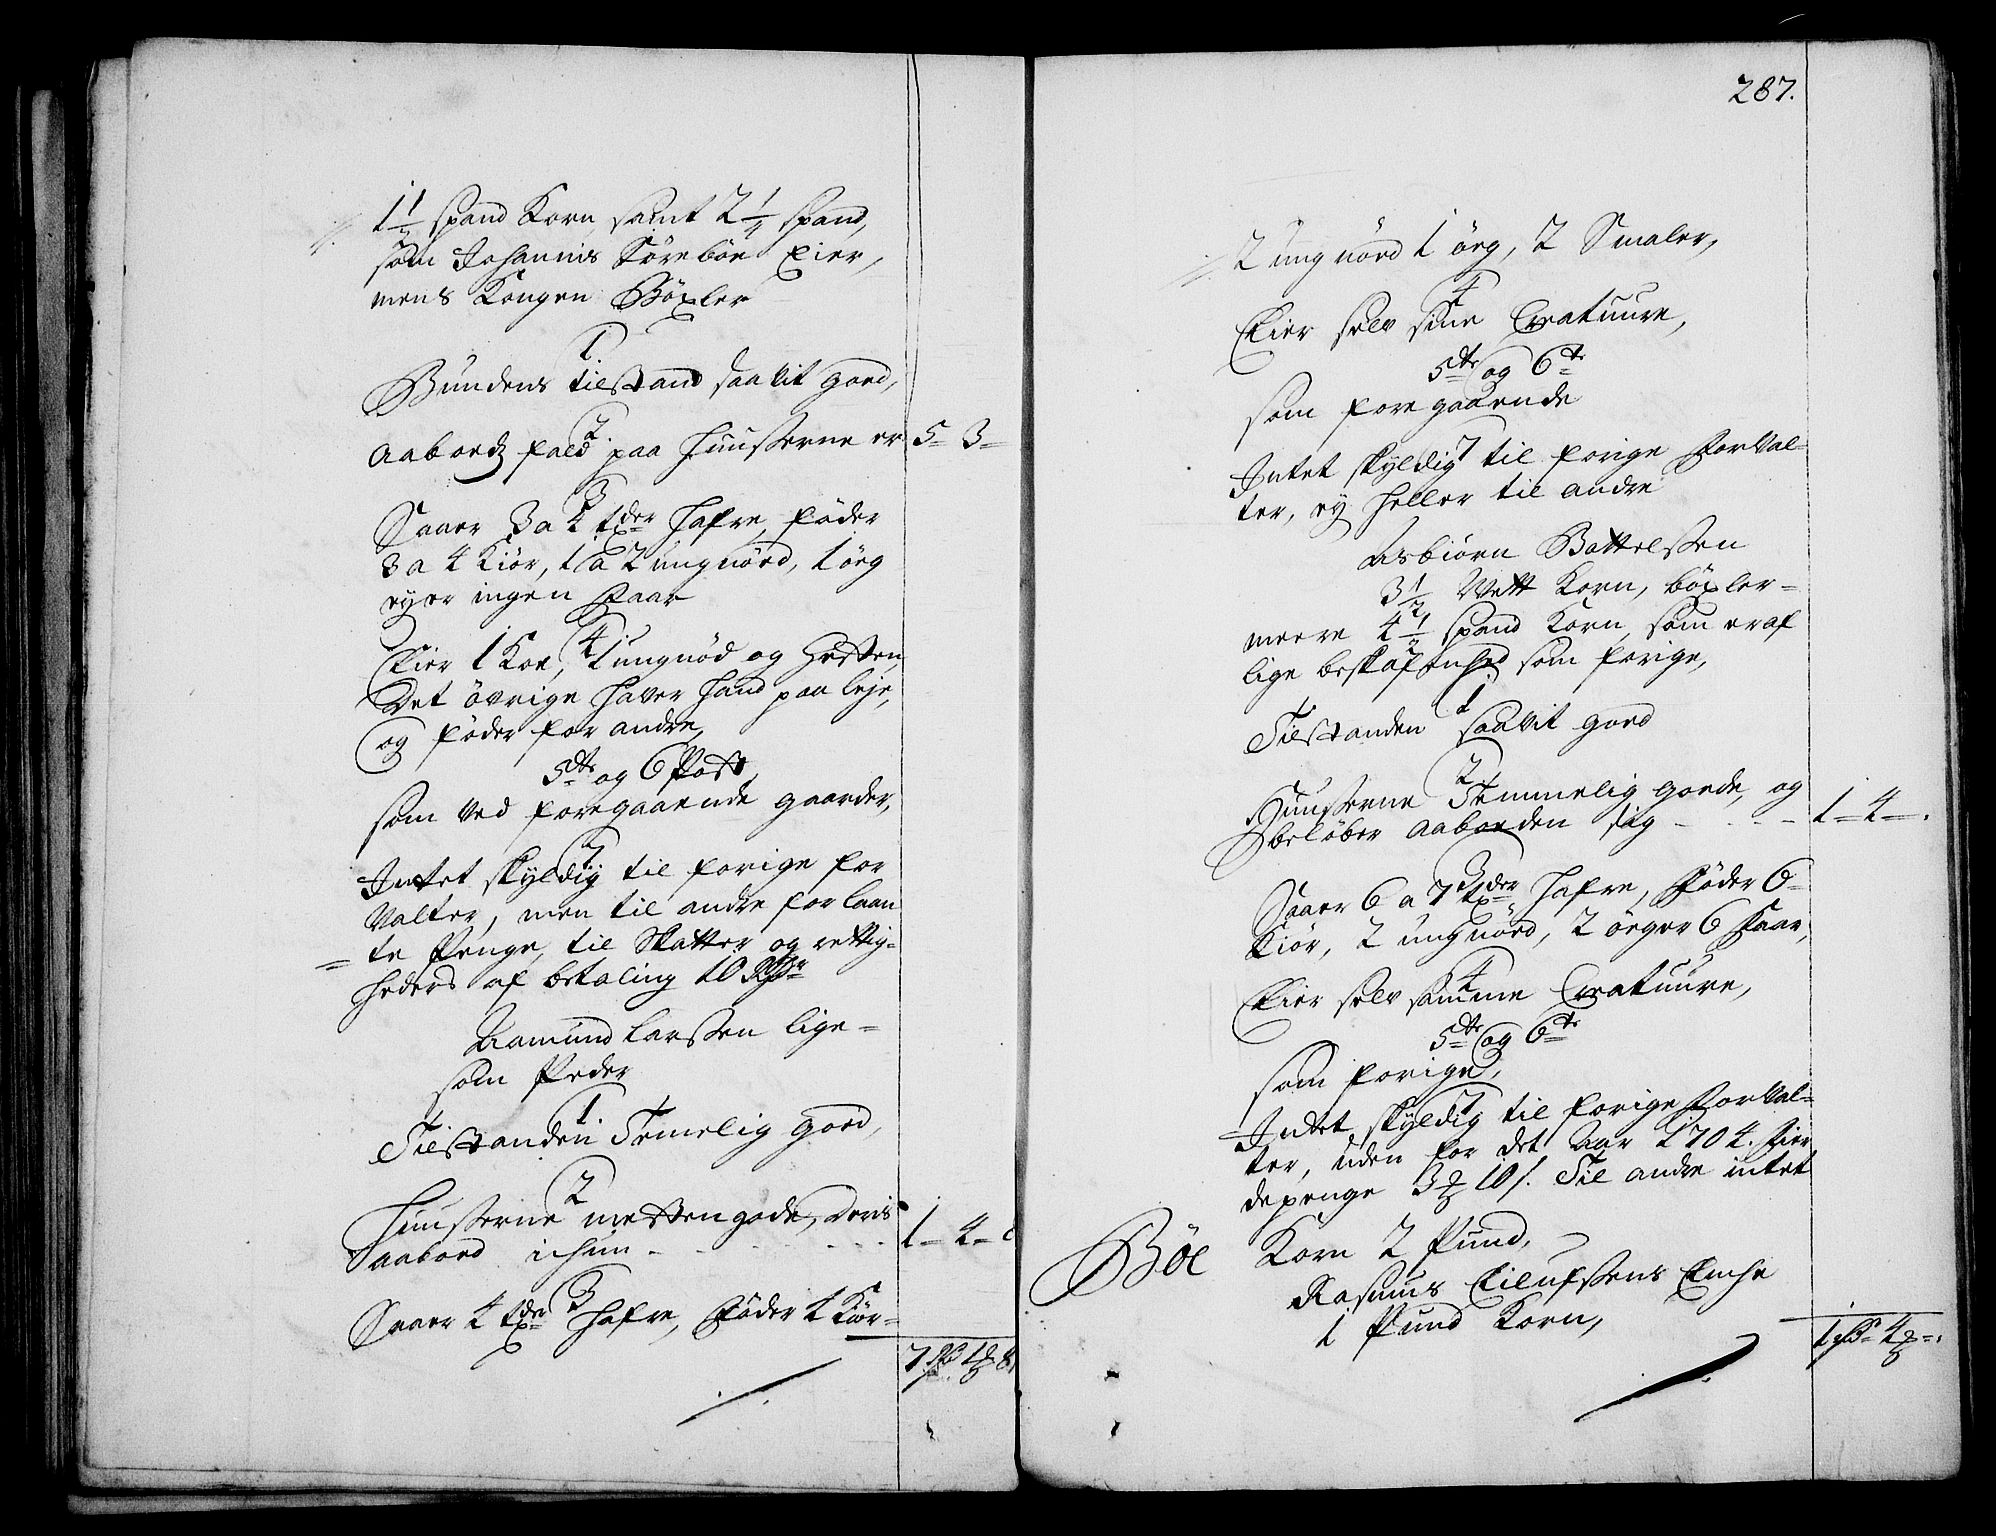 1 1/2 spand Korn, samt 2 1/4 spand,
som Johannis Körebön Eier,
mens Kongen Böxler
1
Bundens tilstand saavit goed,
2.
Aabords fald paa Huusserne er 5 - 3 -
3
Saaer 3 a 4 tder Hafre, föder
3 a 4 Kiör, 1 a 2 ungnöed, 1 örg
eyer ingen Faar
4
Eier 1 Koe, 1 ungnöd og Hesten
Det övrige haver hand paa leje,
og föder for andre,
5te og 6 Post
som ved foregaaende gaarder,
7
Intet skyldig til forige for
Valter, men til andre forlaan
te Penge, til Skatter og rettig-
heders af betaling 10 Rdr
Aamund Larssen lige-
som Peder
1.
Tilstanden Temelig goed,
2
Huusserne mesten gode, deris
Aaboed ichun - - - - - - 1 - 4 -
3
Saaer 4 tder Hafre, Föder 4 Kiör -
7 Rdr 1 8
287.
2 ungnöed 1 örg, 2 Smaler,
4
Eier selv sine Creatuure,
5te og 6te
som foregaaende
7
Intet skyldig til forige Forval-
ter, ey heller til andre
Asbiörn Battelssen
3 1/2 Vett Korn, böxler-
meere 4 1/2 spand Korn, som er af
lige beskafenhed som forige,
1
Tilstanden saavit goed
2
Huusserne Temmelig goede, og
beløber aaboeden sig - - - - 1 - 4 - .
3
Saaer 6 a 7 tder Hafre, Föder 6
Kiör, 2 ungnöed, 2 örger 6 Faar,
4
Eier selv samme Creatuure,
5te og 6te
som forige,
7
Intet skyldig til forige Forval-
ter, uden for det Aar 1704. Fier
depenge 3 10 s. Til andre intet
Böe Korn 2 Pund,
Rasmus Eilufssens Enche
1 Pund Korn,
1 Rdr 4